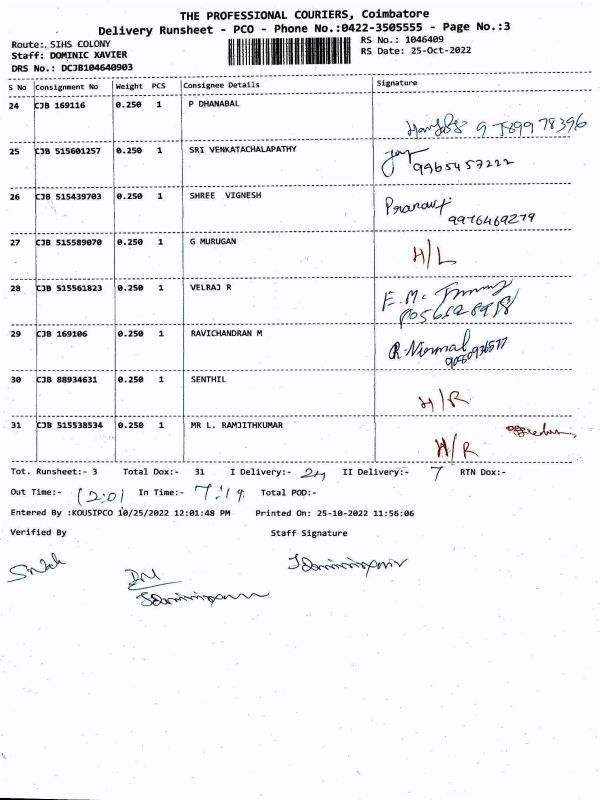 THE PROFESSIONAL COURIERS, Coimbatore
Delivery Runsheet - PCO - Phone No.:0422-3505555 - Page No.:3
Route: SIHS COLONY RS No.: 1046409
Staff: DOMINIC XAVIER RS Date: 25-Oct-2022
DRS No.: DCJB104640903
S No Consignment No Weight PCS Consignee Details Signature
24 CJB 169116 0.250 1 P DHANABAL
25 CJB 515601257 0.250 1 SRI VENKATACHALAPATHY
9965457222
26 CJB 515439703 0.250 1 SHREE VIGNESH
9976469279
27 CJB 515589070 0.250 1 G MURUGAN H/L
28 CJB 515561823 0.250 1 VELRAJ R
29 CJB 169106 0.250 1 RAVICHANDRAN M
R. Nirmal
30 CJB 88934631 0.250 1 SENTHIL H/R
31 CJB 515538534 0.250 1 MR L. RAMJITHKUMAR H/R
Tot. Runsheet:- 3 Total Dox:- 31 I Delivery:- 24 II Delivery:- 7 RTN Dox:-
Out Time:- 12:01 In Time:- 7:19 Total POD:-
Entered By :KOUSIPCO 10/25/2022 12:01:48 PM Printed On: 25-10-2022 11:56:06
Verified By Staff Signature